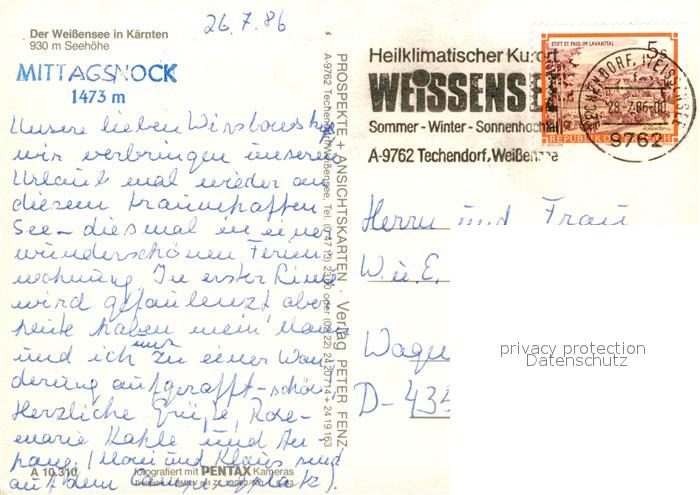 26.7.86
Der Weißensee in Kärnten
930 m Seehöhe
MITTAGSNOCK
1473 m
Unsere lieben
wir verbringen unseren
Urlaub mal wieder an
diesem traumhaften
See - diesmal in einer
wunderschönen Ferien-
wohnung. In erster Linie
wird gefaulenzt aber
heute haben mein Mann
und ich uns zu einer Wan-
derung aufgerafft - schön.
Herzliche Grüße, Rose-
marie Kahle und An-
hang! (Moni und Klaus sind
auf dem Campingplatz).
A 10.310
fotografiert mit PENTAX Kameras
PROSPEKTE + ANSICHTSKARTEN · Verlag PETER FENZ
Heilklimatischer Kurort
WEISSENSEE
Sommer - Winter - Sonnenhochtal
A-9762 Techendorf, Weißensee
STIFT ST. PAUL IM LAVANTTAL
5 S
REPUBLIK ÖSTERREICH
TECHENDORF, WEISSENSEE
28.7.86-00
9762
Herrn und Frau
W. u. E.
D-435
privacy protection
Datenschutz